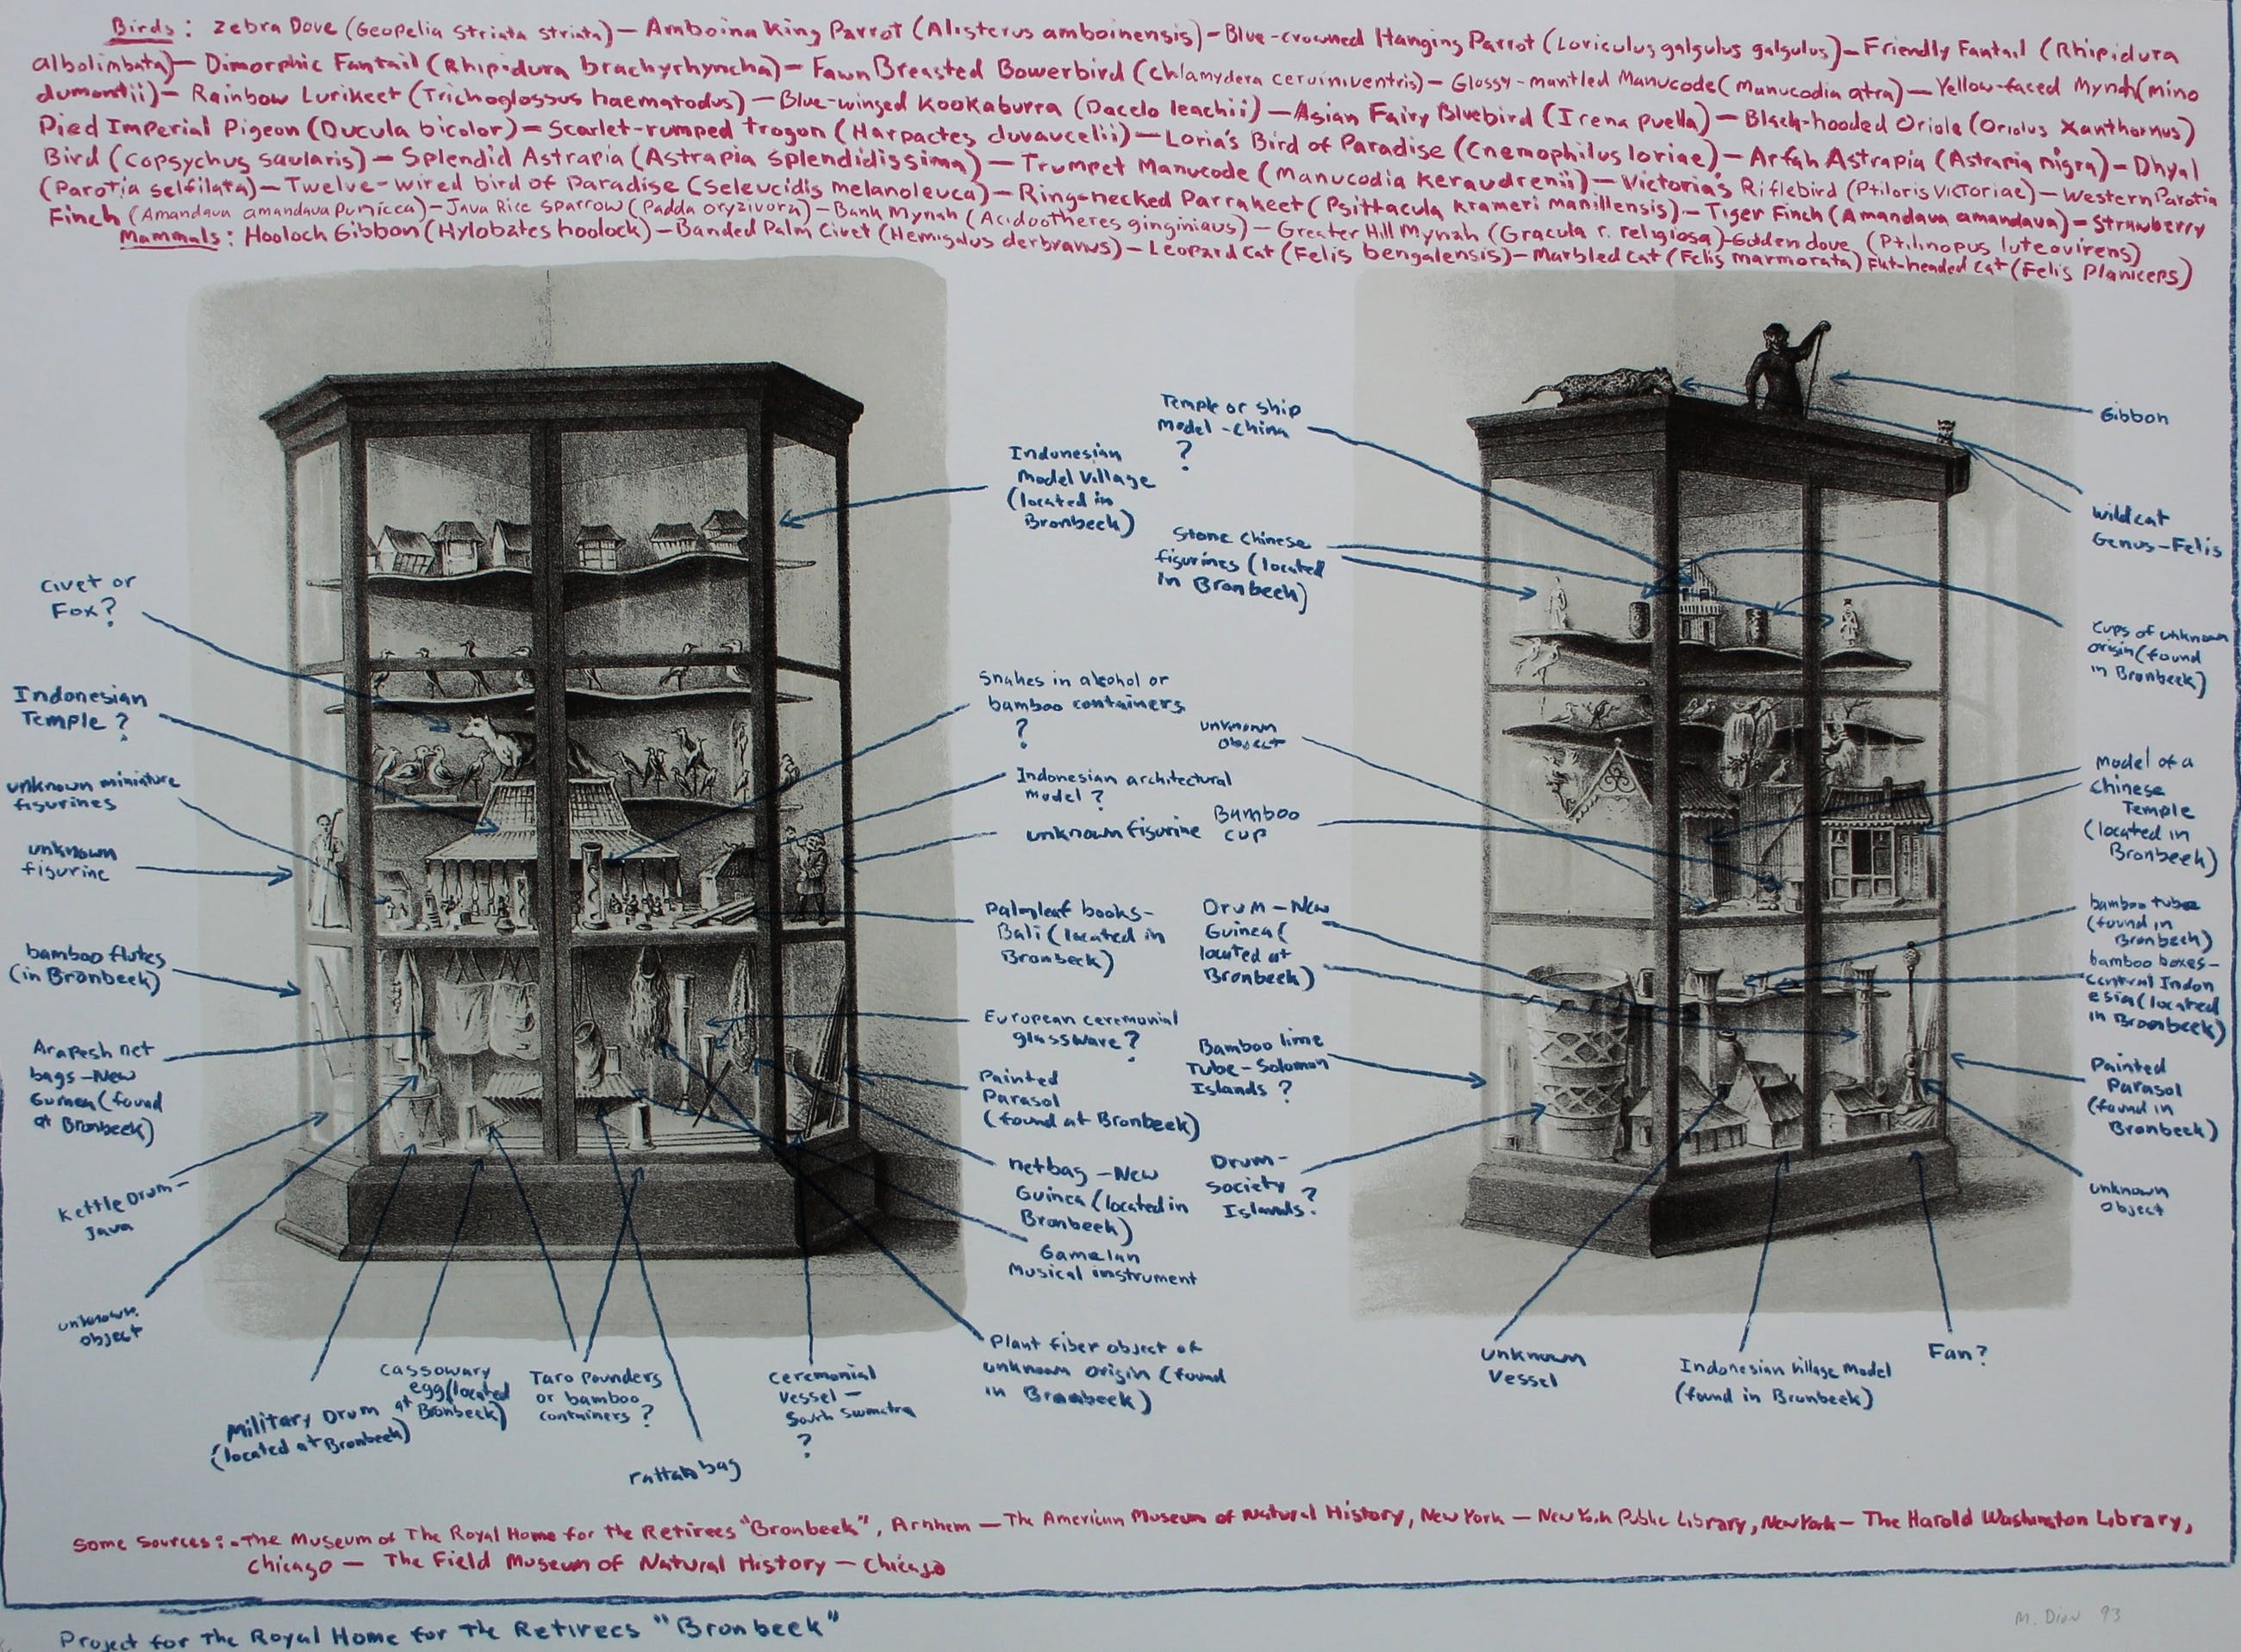 Birds: Zebra Dove (Geopelia Striata striata) — Amboina King Parrot (Alisterus amboinensis) — Blue-crowned Hanging Parrot (Loriculus galgulus galgulus) — Friendly Fantail (Rhipidura
albolimbata) — Dimorphic Fantail (Rhipidura brachyrhyncha) — Fawn Breasted Bowerbird (Chlamydera cerviniventris) — Glossy-mantled Manucode (Manucodia atra) — Yellow-faced Mynah (mino
dumontii) — Rainbow Lurikeet (Trichoglossus haematodus) — Blue-winged Kookaburra (Dacelo leachii) — Asian Fairy Bluebird (Irena puella) — Black-hooded Oriole (Oriolus Xanthornus)
Pied Imperial Pigeon (Ducula bicolor) — Scarlet-rumped Trogon (Harpactes duvaucelii) — Loria's Bird of Paradise (Cnemophilus loriae) — Arfak Astrapia (Astrapia nigra) — Dhyal
Bird (Copsychus saularis) — Splendid Astrapia (Astrapia splendidissima) — Trumpet Manucode (Manucodia Keraudrenii) — Victoria's Riflebird (Ptiloris VICToriae) — Western Parotia
(Parotia sefilata) — Twelve-wired bird of Paradise (Seleucidis melanoleuca) — Ring-necked Parrakeet (Psittacula Krameri manillensis) — Tiger Finch (Amandava amandava) — Strawberry
Finch (Amandava amandava Punicea) — Java Rice Sparrow (Padda oryzivora) — Bank Mynah (Acidotheres ginginiaus) — Greater Hill Mynah (Gracula r. religiosa) — Golden dove (Ptilinopus luteovirens)
Mammals: Hooloch Gibbon (Hylobates hoolock) — Banded Palm Civet (Hemigalus derbyanus) — Leopard Cat (Felis bengalensis) — Marbled cat (Felis marmorata) Flat-headed Cat (Felis Planiceps)
Civet or
Fox?
Indonesian
Temple?
unknown miniature
figurines
unknown
figurine
bamboo flutes
(in Bronbeek)
Arapesh net
bags — New
Guinea (found
at Bronbeek)
Kettle Drum —
Java
unknown
object
Military Drum
(located at Bronbeek)
Cassowary
egg (located
at Bronbeek)
Taro Pounders
or bamboo
containers?
rattan bag
Ceremonial
Vessel —
South Sumatra
?
Indonesian
Model Village
(located in
Bronbeek)
Snakes in alcohol or
bamboo containers
?
Indonesian architectural
model?
unknown figurine
Palmleaf books —
Bali (located in
Bronbeek)
European ceremonial
glassware?
Painted
Parasol
(found at Bronbeek)
netbag — New
Guinea (located in
Bronbeek)
Gamelan
Musical instrument
Plant fiber object of
unknown origin (found
in Bronbeek)
Temple or ship
Model — China
?
Stone Chinese
figurines (located
in Bronbeek)
unknown
object
Bamboo
cup
Drum — New
Guinea (
located at
Bronbeek)
Bamboo lime
Tube — Solomon
Islands?
Drum —
Society
Islands?
unknown
Vessel
Indonesian Village Model
(found in Bronbeek)
Fan?
Gibbon
wildcat
Genus — Felis
Cups of unknown
origin (found
in Bronbeek)
Model of a
Chinese
Temple
(located in
Bronbeek)
bamboo tube
(found in
Bronbeek)
bamboo boxes —
Central Indon
esia (located
in Bronbeek)
Painted
Parasol
(found in
Bronbeek)
unknown
object
Some Sources: — The Museum of The Royal Home for the Retirees "Bronbeek", Arnhem — The American Museum of Natural History, New York — New York Public Library, New York — The Harold Washington Library,
Chicago — The Field Museum of Natural History — Chicago
Project for The Royal Home for The Retirees "Bronbeek"
M. Dion 93